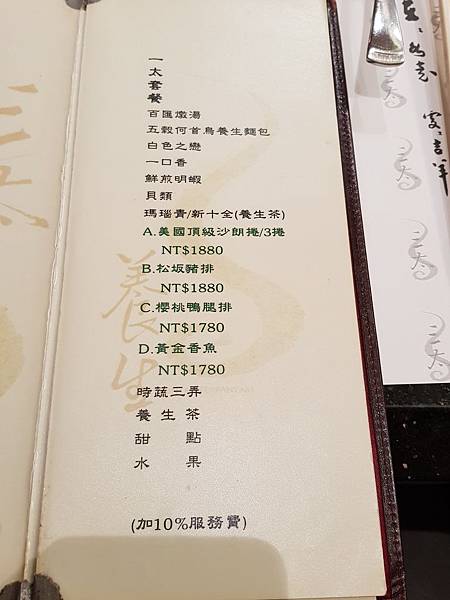 一太套餐
百匯燉湯
五穀何首烏養生麵包
白色之戀
一口香
鮮煎明蝦
貝類
瑪瑙青/新十全(養生茶)
A.美國頂級沙朗捲/3捲
NT$1880
B.松坂豬排
NT$1880
C.櫻桃鴨腿排
NT$1780
D.黃金香魚
NT$1780
時蔬三弄
養生茶
甜點
水果
(加10%服務費)
養生